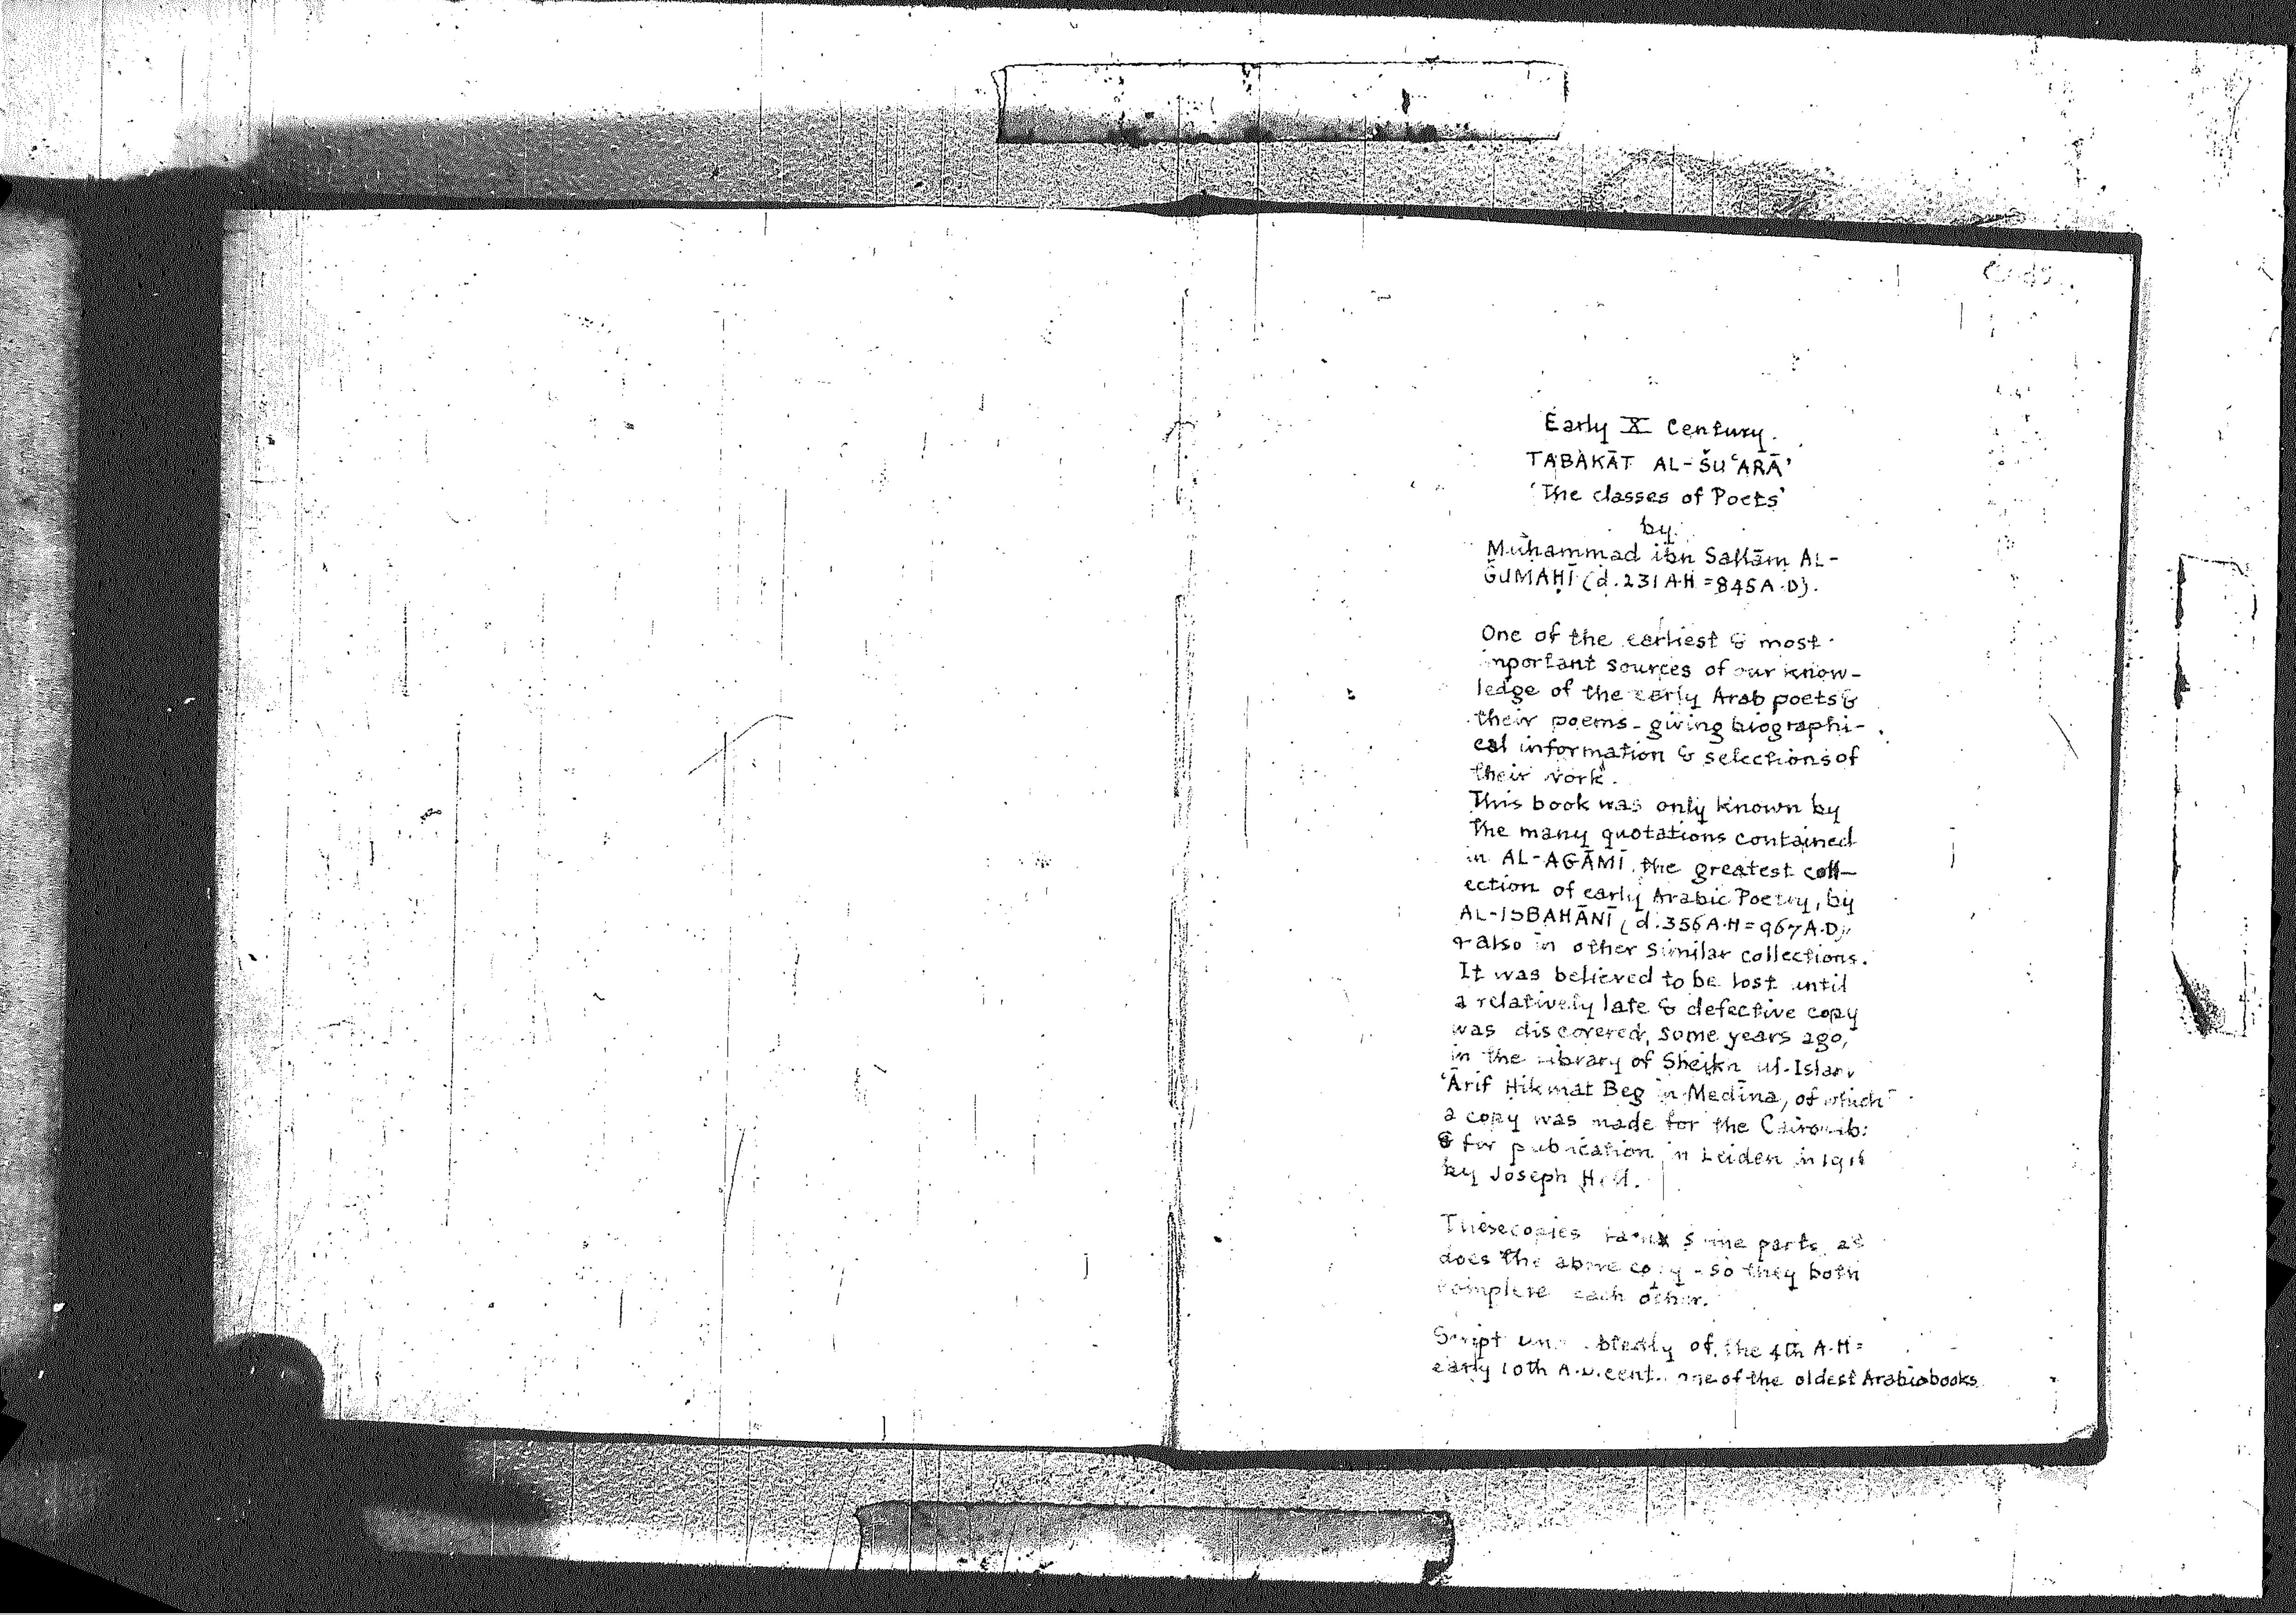 Early X Century.
TABAKĀT AL-ŠU‘ARĀ’
‘The classes of Poets’
by
Muḥammad ibn Sallām AL-
ĞUMAḤĪ (d. 231 A·H = 845 A·D).
One of the earliest & most
important sources of our know-
ledge of the early Arab poets &
their poems - giving biographi-
cal information & selections of
their work.
This book was only known by
the many quotations contained
in AL-AGĀMĪ, the greatest coll-
ection of early Arabic Poetry, by
AL-ISBAHĀNĪ (d. 356 A·H = 967 A·D),
& also in other similar collections.
It was believed to be lost until
a relatively late & defective copy
was discovered, some years ago,
in the library of Sheikh ul-Islam
‘Ārif Ḥikmat Beg in Medīna, of which
a copy was made for the Cairo Lib:
& for publication in Leiden in 1916
by Joseph Hell.
These copies some parts, as
does the above copy - so they both
complete each other.
Script undoubtedly of the 4th A·H =
early 10th A.D. cent. one of the oldest Arabic books